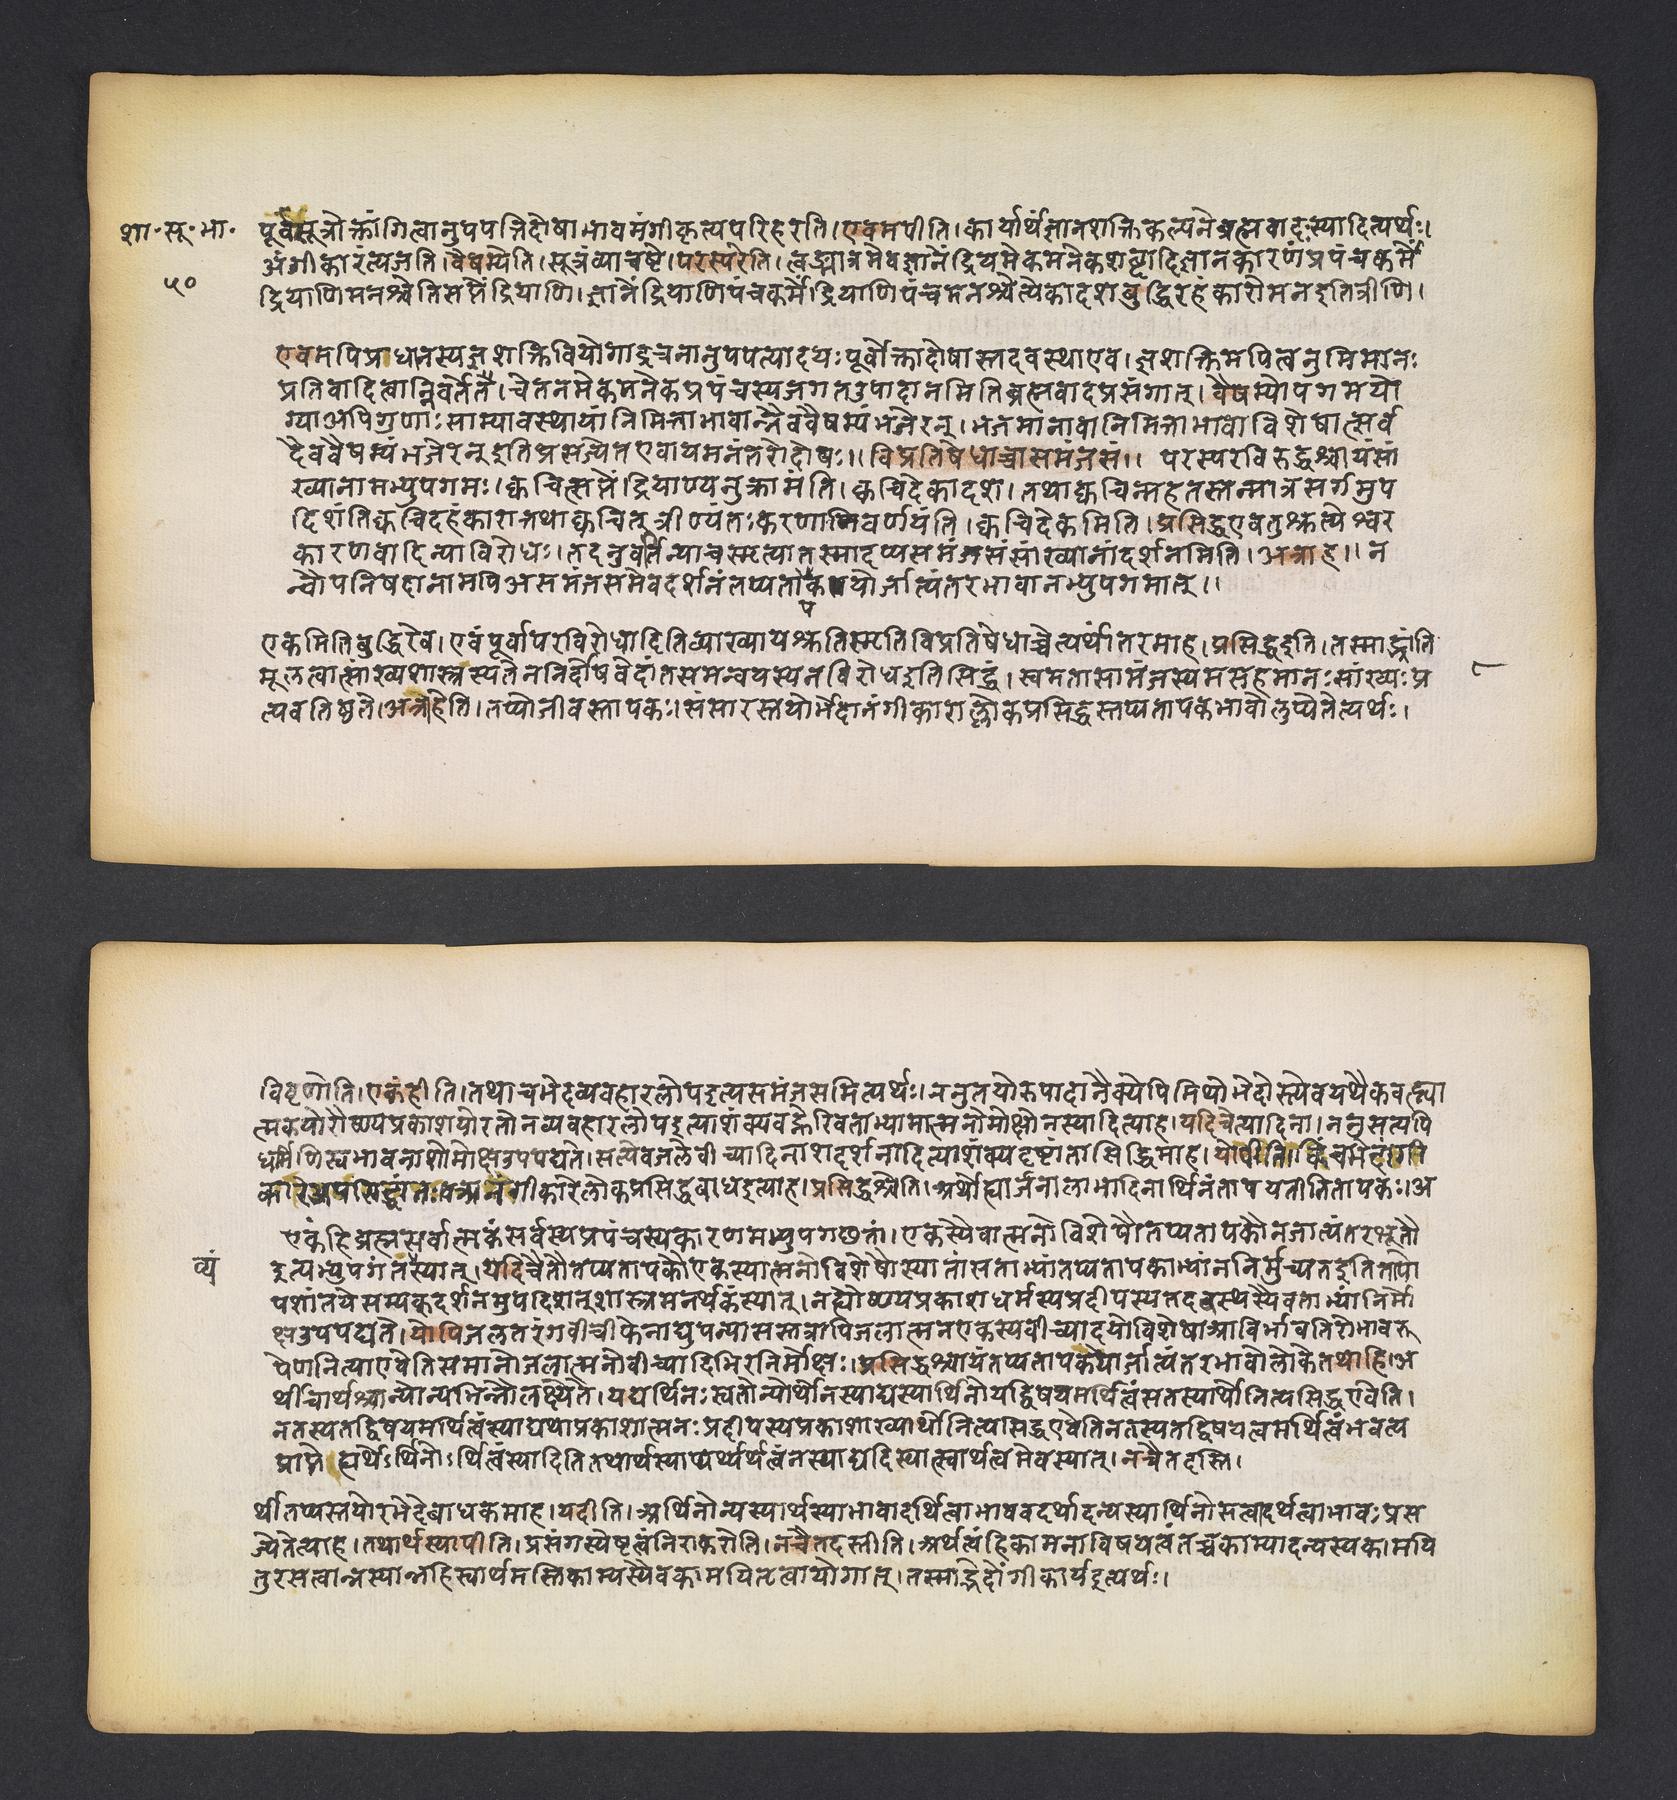 शा॰सू॰भा॰
५०
पूर्वसूत्रोक्तांगित्वानुपपत्तिदोषाभावमंगीकृत्यपरिहरति।एवमपीति।कार्यार्थंज्ञानशक्तिकल्पनेब्रह्मवादःस्यादित्यर्थः।
अंगीकारंत्यजति।वैषम्येति।सूत्रंव्याचष्टे।परस्परेति।त्वङ्मात्रमेवज्ञानेंद्रियमेकमनेकशब्दादिज्ञानकारणंप्रपंचकर्में
द्रियाणिमनश्चेतिसप्तेंद्रियाणि।ज्ञानेंद्रियाणिपंचकर्मेंद्रियाणिपंचमनश्चेत्येकादशबुद्धिरहंकारोमनइतित्रीणि।
एवमपिप्राधानस्यज्ञशक्तिवियोगाद्रचनानुपपत्यादयःपूर्वोक्तादोषास्तदवस्थाएव।ज्ञशक्तिमपित्वनुमिमानः
प्रतिवादित्वान्निवर्तेत।चेतनमेकमनेकप्रपंचस्यजगतउपादानमितिब्रह्मवादप्रसंगात्।वैषम्योपगमयो
ग्याअपिगुणाःसाम्यावस्थायांनिमित्ताभावान्नैववैषम्यंभजेरन्।भजमानावानिमित्ताभावाविशेषात्सर्व
दैववैषम्यंभजेरन्इतिप्रसज्येतएवायमनंतरोदोषः॥विप्रतिषेधाच्चासमंजसं॥ परस्परविरुद्धश्चायंसां
ख्यानामभ्युपगमः।क्वचित्सप्तेंद्रियाण्यनुक्रामंति।क्वचिदेकादश।तथाक्वचिन्महतस्तन्मात्रसर्गमुप
दिशंतिक्वचिदहंकारात्तथाक्वचित्त्रीण्यंतःकरणानिवर्णयंति।क्वचिदेकमिति।प्रसिद्धएवतुश्रुत्येश्वर
कारणवादिन्याविरोधः।तदनुवर्तिन्याचस्मृत्यातस्मादप्यसमंजसंसांख्यानांदर्शनमिति।अत्राह॥न
न्वौपनिषदानामपिअसमंजसमेवदर्शनंतप्यतापकयोर्जात्यंतरभावानभ्युपगमात्॥
प
एकमितिबुद्धिरेव।एवंपूर्वापरविरोधादितिव्याख्यायश्रुतिस्मृतिविप्रतिषेधाच्चेत्यर्थांतरमाह।प्रसिद्धइति।तस्माद्भ्रांति
मूलत्वात्सांख्यशास्त्रस्यतेननिर्दोषवेदांतसमन्वयस्यनविरोधइतिसिद्धं।स्वमतासामंजस्यमसहमानःसांख्यःप्र
त्यवतिष्ठते।अत्राहेति।तप्योजीवस्तापकःसंसारस्तयोर्भेदानंगीकाराल्लोकप्रसिद्धस्तप्यतापकभावोलुप्येतेत्यर्थः।
विवृणोति।एकंहीति।तथाचभेदव्यवहारलोपइत्यसमंजसमित्यर्थः।ननुतयोरुपादानैक्येपिमिथोभेदोस्त्येवयथैकवह्न्या
त्मकयोरौष्ण्यप्रकाशयोरतोनव्यवहारलोपइत्याशंक्यवह्नेरिवताभ्यामात्मनोमोक्षोनस्यादित्याह।यदिचेत्यादिना।ननुसत्यपि
धर्मिणिस्वभावनाशोमोक्षउपपद्यते।सत्येवजलेवीच्यादिनाशदर्शनादित्याशंक्यदृष्टांतासिद्धिमाह।योपीति।किंचभेदानंगी
कारेअपसिद्धांतःअनंगीकारेलोकप्रसिद्धबाधइत्याह।प्रसिद्धश्चेति।अर्थोह्यार्जनालाभादिनार्थिनंतापयतीतितापकः।अ
एकंहिब्रह्मसर्वात्मकंसर्वस्यप्रपंचस्यकारणमभ्युपगछतां।एकस्यैवात्मनोविशेषौतप्यतापकौनजात्यंतरभूतौ
व्यं
इत्यभ्युपगंतस्यात्।यदिचैतौतप्यतापकौएकस्यात्मनोविशेषौस्यातांसताभ्यांतप्यतापकाभ्यांननिर्मुच्यतइतितापो
पशांतयेसम्यक्दर्शनमुपदिशत्शास्त्रमनर्थकंस्यात्।नह्यौष्ण्यप्रकाशधर्मस्यप्रदीपस्यतदवस्थस्यैवताभ्यांनिर्मो
क्षउपपद्यते।योपिजलतरंगवीचीफेनाद्युपन्यासस्तत्रापिजलात्मनएकस्यवीच्यादयोविशेषाआविर्भावतिरोभावरू
पेणनित्याएवेतिसमानोजलात्मनोवीच्यादिभिरनिर्मोक्षः।प्रसिद्धश्चायंतप्यतापकयोर्जात्यंतरभावोलोकेतथाहि।अ
र्थीचार्थश्चान्योन्यभिन्नौलक्ष्येते।यद्यर्थिनःस्वतोन्योर्थोनस्याद्यस्यार्थिनोयद्विषयमर्थित्वंसतस्यार्थोनित्यसिद्धएवेति।
नतस्यतद्विषयमर्थित्वंस्याद्यथाप्रकाशात्मनःप्रदीपस्यप्रकाशाख्यार्थोनित्यसिद्धएवेतिनतस्यतद्विषयत्वमर्थित्वंभवत्य
प्राप्तेह्यर्थेऽर्थिनोऽर्थित्वंस्यादितितथार्थस्याप्यर्थ्यर्थत्वंनस्याद्यदिस्यात्स्वार्थत्वमेवस्यात्।नचैतदस्ति।
र्थीतप्यस्तयोरभेदेबाधकमाह।यदीति।अर्थिनोन्यस्यार्थस्याभावादर्थित्वाभाववदर्थादन्यस्यार्थिनोसत्वादर्थत्वाभावःप्रस
ज्येतेत्याह।तथार्थस्यापीति।प्रसंगस्येष्टत्वंनिराकरोति।नचैतदस्तीति।अर्थत्वंहिकामनाविषयत्वंतच्चकाम्यादन्यस्यकामयि
तुरसत्वान्नस्यान्नहिस्वार्थमस्तिकाम्यस्यैवकामयितृत्वायोगात्।तस्माद्भेदोंगीकार्यइत्यर्थः।